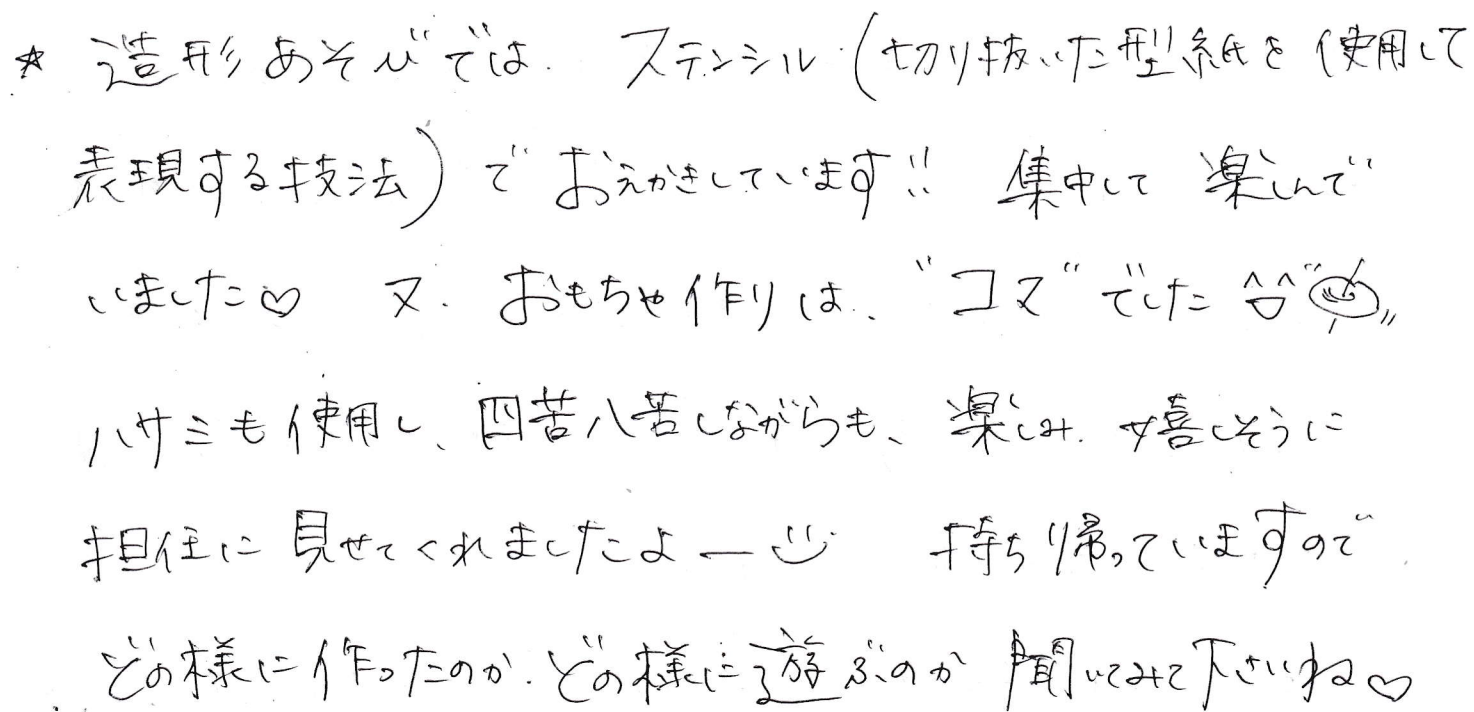 ☆ 造形あそびでは、ステンシル(切り抜いた型紙を使用して
表現する技法)でおえかきしています!! 集中して 楽しんで
いました♡ 又、おもちゃ作りは、"コマ"でした
ハサミも使用し、四苦八苦しながらも、楽しみ、嬉しそうに
担任に見せてくれましたよー 持ち帰っていますので
どの様に作ったのか、どの様に遊ぶのか 聞いてみて下さいね♡